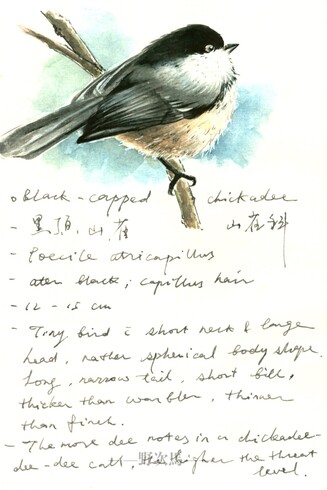 Black-capped chickadee
- 黑頭山雀 山雀科
- Poecile atricapillus
- ater black; capillus hair
- 12-15 cm
- Tiny bird c̄ short neck & large
head, rather spherical body shape.
Long, narrow tail, short bill,
thicker than warbler, thinner
than finch.
- The more dee notes in a chickadee-
dee-dee call, higher the threat
level.